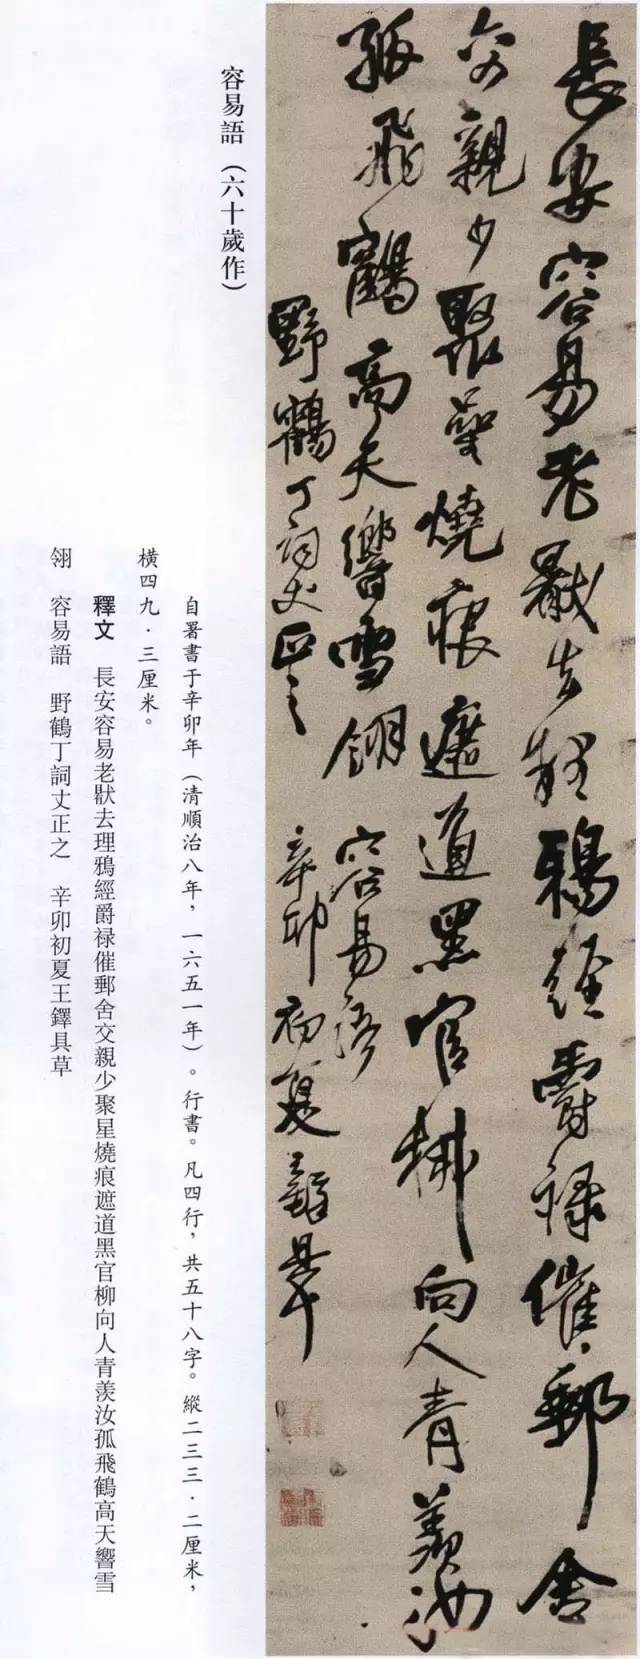 長安容易老猒去理鴉經爵祿催郵舍
交親少聚星燒痕遮道黑官柳向人青羨汝
孤飛鶴高天響雪翎 容易語
野鶴丁詞丈正之 辛卯初夏王鐸具草
容易語（六十歲作）
自署書于辛卯年（清順治八年，一六五一年）。行書。凡四行，共五十八字。縱二三三·二厘米，
橫四九·三厘米。
釋文 長安容易老狀去理鴉經爵禄催郵舍交親少聚星燒痕遮道黑官柳向人青羨汝孤飛鶴高天響雪
翎 容易語 野鶴丁詞丈正之 辛卯初夏王鐸具草